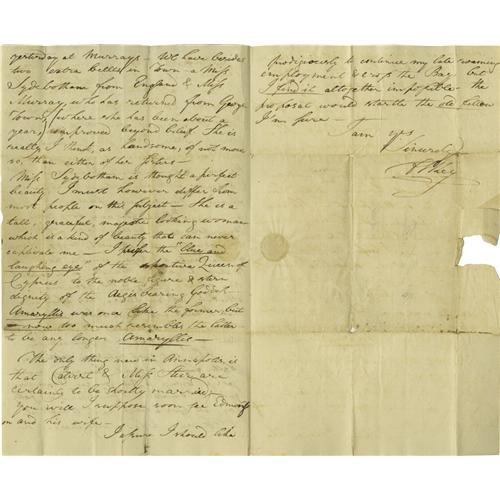 yesterday at Murrays - We have besides
two extra belles in Town - a Miss
Sydebotham from England & Miss
Murray, who has returned from George
Town (where she has been about a
year) improved beyond belief She is
really I think, as handsome, if not more
so, than either of her sisters -
Miss Sydebotham is thought a perfect
beauty I must however differ from
most people on this subject - She is a
tall, graceful, majestic looking woman
which is a kind of beauty that can never
captivate me - I prefer the "blue and
laughing eye" of the Queen of
Cyprus to the noble figure & stern
dignity of the Aegis bearing Goddess
Amaryllis was once like the former, but
now too much resembles the latter
to be any longer Amaryllis -
The only thing new in Annapolis is
that Calvert & Miss Steer are
certainly to be shortly married
you will I suppose soon see Edmond
on and his wife -
I assure I should like
prodigiously to continue my late roaming
employment & cross the Bay but
I find it altogether impossible - the
proposal would startle the old fellow
I'm sure -
I am yrs
Sincerely